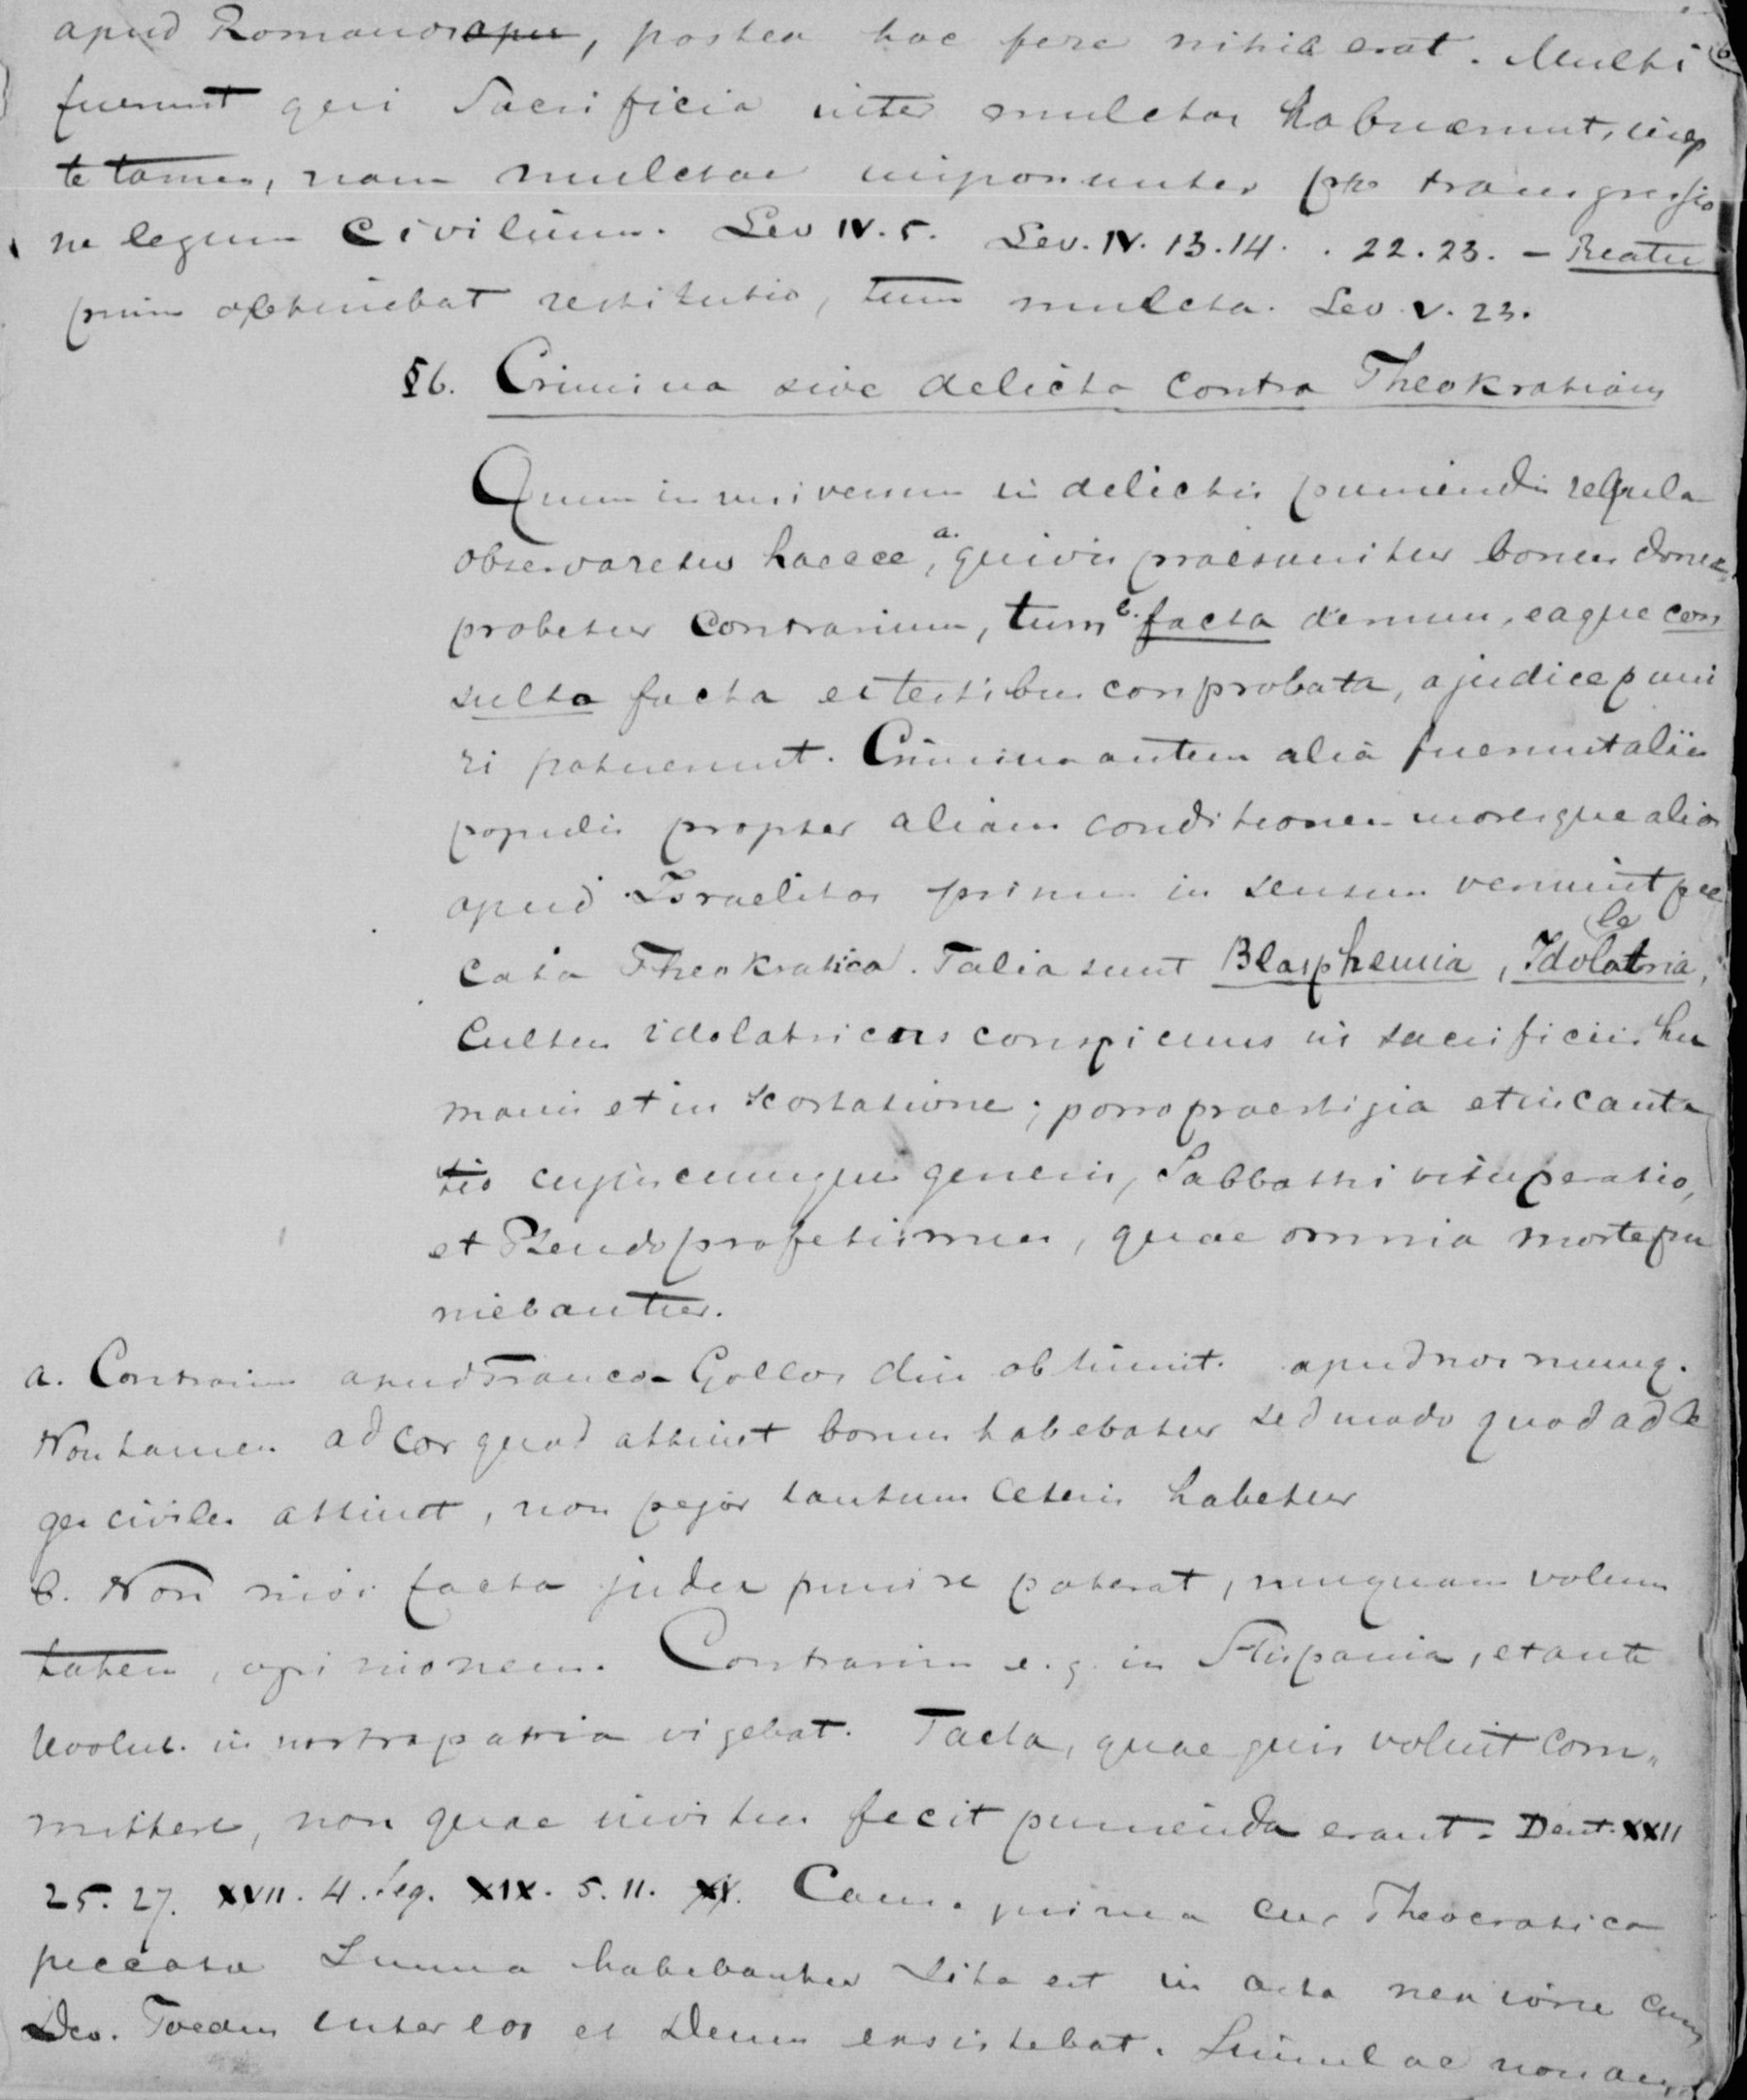 apud Romanos apu, postea hac fere nihil erat. Multi
fuerunt qui Sacrificia inter mulctas habuerunt, inep
te tamen, nam mulctae imponuntur pro transgressio
ne legum Civilium. Lev IV. 5. Lev. IV. 13. 14. . 22. 23. – Reatu
primo obtinebat restitutio, tum mulcta. Lev. V. 23.
§6. Crimina sive delicta contra Theokratiam
Quum in universum in delictis puniendis regula
observaretur haecce, a. quivis praesumitur bonus donec
probetur Contrarium, tum b. facta demum, eaque con
sulto facta et testibus conprobata, a judice puni
ri potuerunt. Crimina autem alia fuerunt aliis
populis propter aliam conditionem moresque alios
apud Israelitas primum in sensum veniunt pec
cata Theokratica. Talia sunt Blasphemia, Idolatria, la
Cultus idolatricus conspicuus in sacrificiis hu
manis et in scortatione; porro praestigia et incanta
tio cujuscumque generis, Sabbathi vituperatio,
et Pseudoprofetismus, quae omnia morte pu
niebantur.
a. Contrarium apud Franco-Gallos diu obtinuit. apud nos nunq.
Non tamen ad cor quod attinet bonus habebatur sed modo quod ad le
ges civiles attinet, non pejor tantum ceteris habetur
b. Non nisi facta judex punire poterat, nunquam volun
tatem, opinionem. Contrarium e.g. in Hispania, et ante
Revolut. in nostra patria vigebat. Facta, quae quis voluit com„
mittere, non quae invitus fecit punienda erant. Deut. XXII
25. 27. XVII. 4. seq. XIX. 5. 11. XX. Caus. prima cur Theocratica
peccata Summa habebantur sita est in arcta nexione cum
Deo. Foedus inter eos et Deum exsistebat. Simul ac non